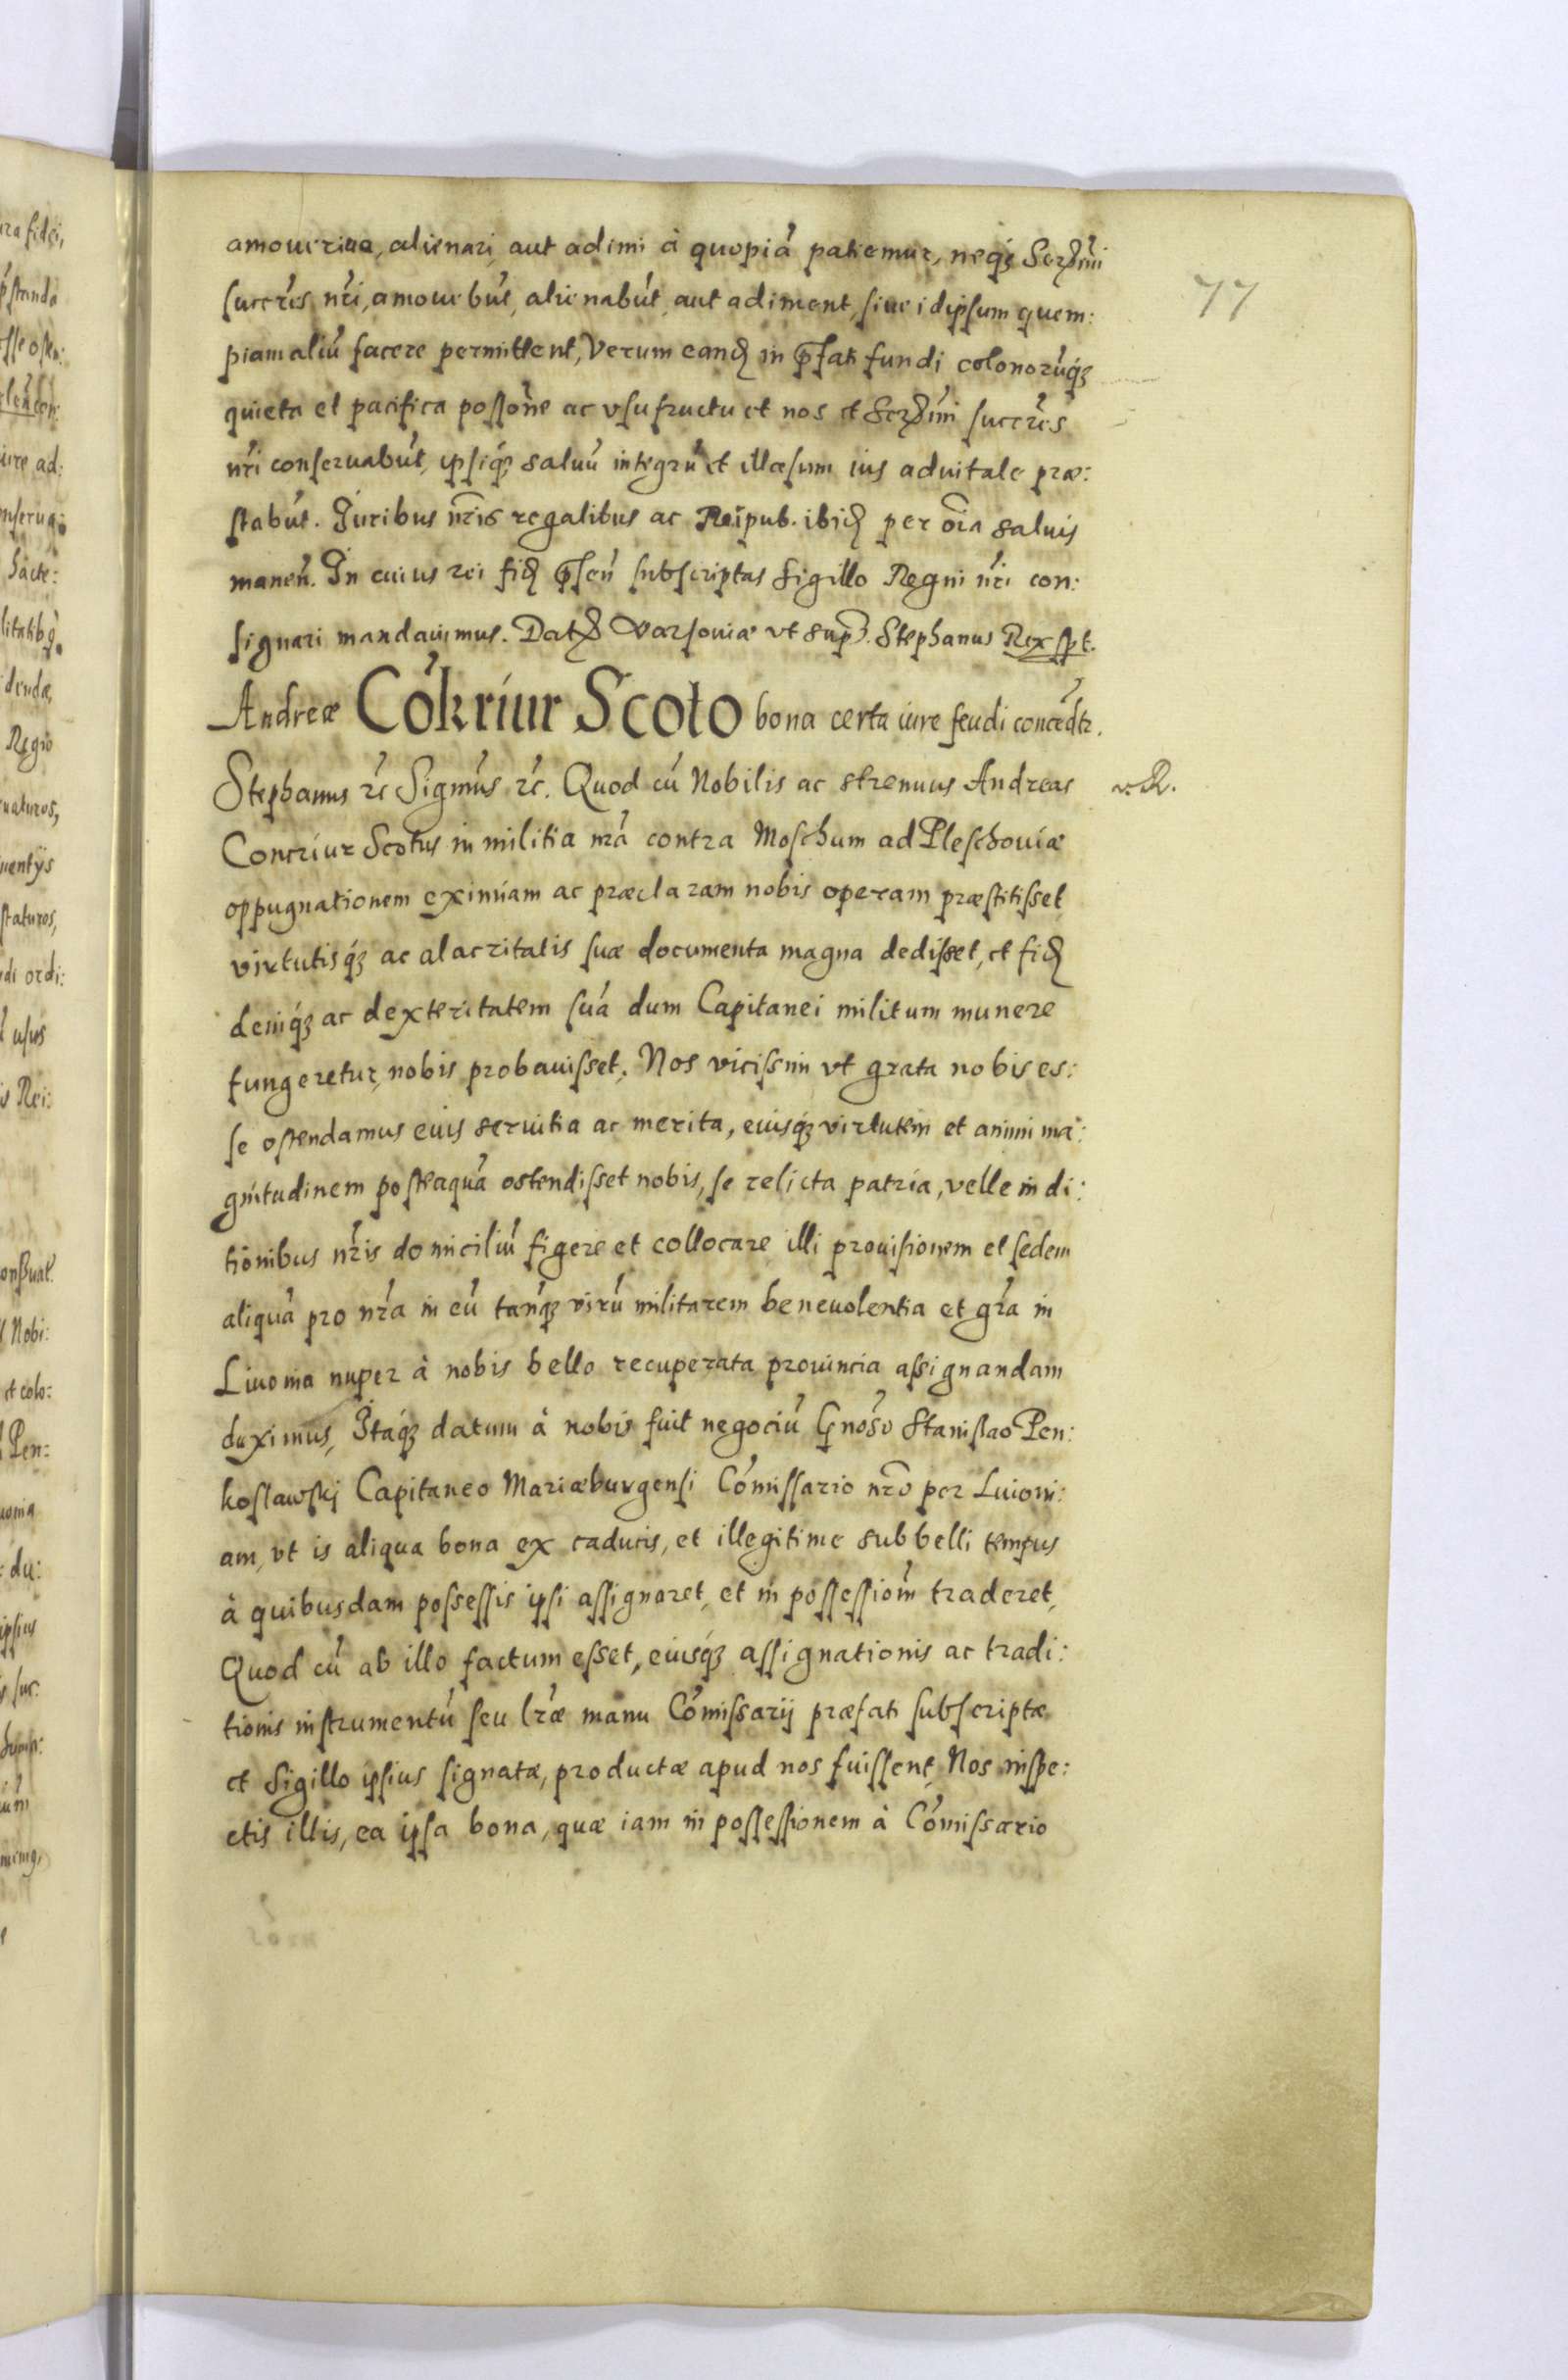 amoueriue, alienari, aut adimi à quopiã patiemur, neqʒ Serẽmi
succr̃es nr̃i, amouebũt, alienabũt, aut adiment, siue idipsum quem:
piam aliũ facere permittent, Verum eand in pr̃fati fundi colonorũqʒ
quieta et pacifica possoñe ac vsufructu et nos et Serẽmi succr̃es
nr̃i conseruabũt, ipsiqʒ saluũ integrũ et illæsum ius aduitale præ:
stabũt. Juribus nr̃is regalibus ac Reipub. ibid per oĩa saluis
maneñ. In cuius rei fid pr̃señ subscriptas Sigillo Regni nr̃i con:
signari mandauimus. Dat Varsouiæ vt sup. Stephanus Rex spt.
77
Andreæ Cõkriur Scoto bona certa iure feudi concedt̃r.
Stephanus rc̃ Sigmũs rc̃. Quod cũ Nobilis ac strenuus Andreas
Concriur Scotus in militia nr̃a contra Moschum ad Pleschouiæ
oppugnationem eximiam ac præclaram nobis operam præstitisset
virtutisqʒ ac alacritatis suæ documenta magna dedisset, et fid
deniqʒ ac dexteritatem suã dum Capitanei militum munere
fungeretur, nobis probauisset. Nos vicissim vt grata nobis es:
se ostendamus eius seruitia ac merita, eiusqʒ virtutem et animi ma:
gnitudinem posteaquã ostendisset nobis, se relicta patria, velle in di:
tionibus nr̃is domiciliũ figere et collocare illi prouisionem et sedem
aliquã pro nr̃a in eũ tanqʒ virũ militarem beneuolentia et gr̃a in
Liuonia nuper à nobis bello recuperata prouincia assignandam
duximus, Itaqʒ datum à nobis fuit negociũ Gnõso Stanislao Pen:
koslawskj Capitaneo Mariæburgensi Cõmissario nr̃o per Liuoni:
am, vt is aliqua bona ex caducis, et illegitime sub belli tempus
à quibusdam possessis ipsi assignaret, et in possessioñ traderet,
Quod cũ ab illo factum esset, eiusqʒ assignationis ac tradi:
tionis instrumentũ seu lr̃æ manu Cõmissarij præfati subscriptæ
et Sigillo ipsius signatæ, productæ apud nos fuissent, Nos inspe:
ctis illis, ea ipsa bona, quæ iam in possessionem à Cõmissario